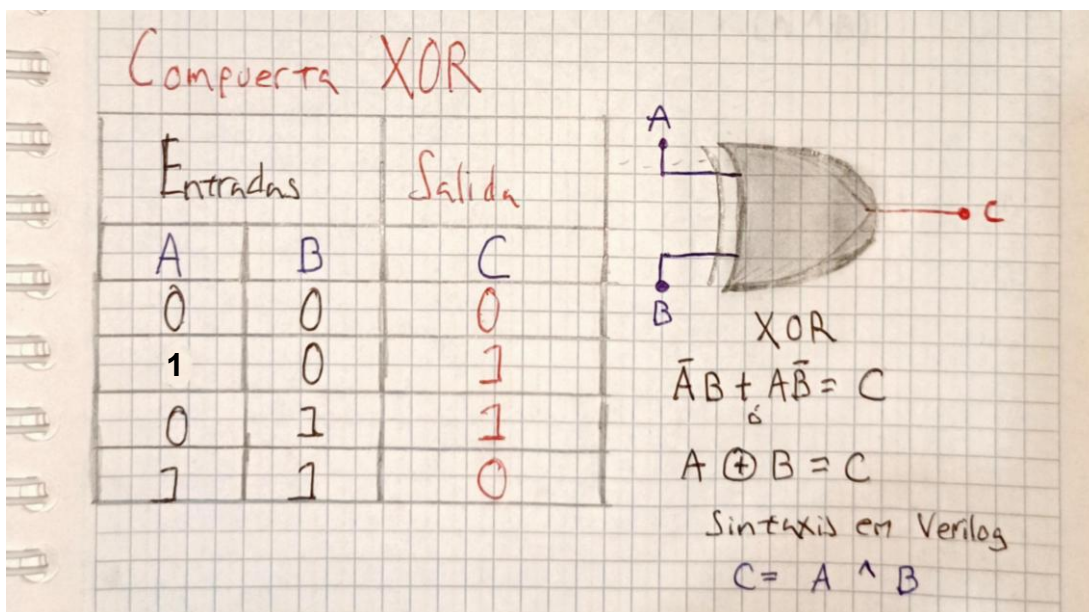 Compuerta XOR
Entradas Salida
A B C
0 0 0
1 0 1
0 1 1
1 1 0
A
C
B
XOR
ĀB + AB̄ = C
ó
A ⊕ B = C
Sintaxis en Verilog
C = A ^ B